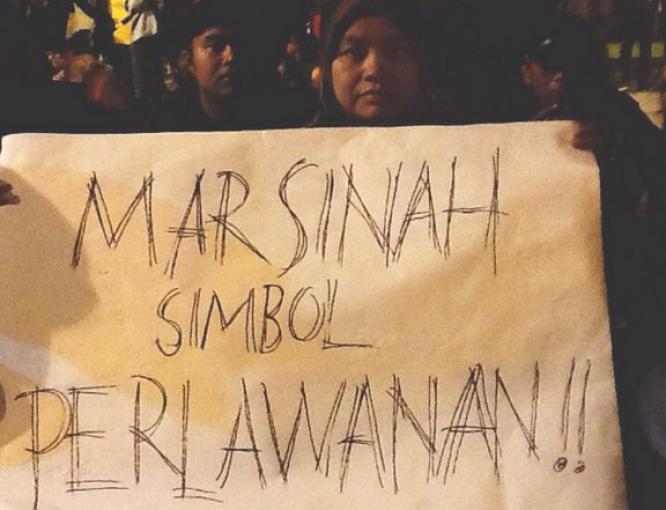 MARSINAH
SIMBOL
PERLAWANAN!!